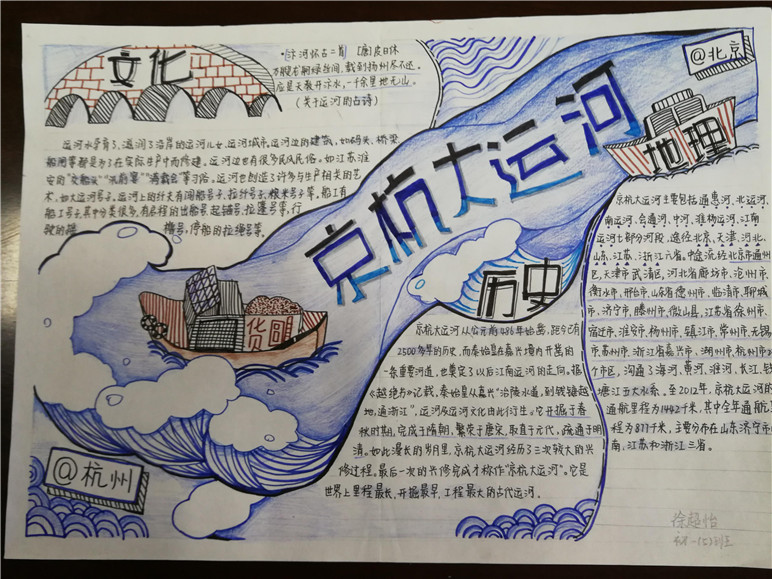 文化
·汴河怀古二首 [唐]皮日休
万艘龙舸绿丝间,载到扬州尽不还。
应是天教开汴水,一千余里地无山。
(关于运河的古诗)
运河水孕育了、滋润了沿岸的运河儿女、运河城市,运河边的建筑,如码头、桥梁、
船闸等都是为了在实际生产中而修建。运河边也有很多民风民俗。如江苏淮
安的
等习俗。运河也创造了许多与生产相关的艺
术,如大运河号子,运河上的纤夫有闸船号子、拉纤号子、粮米号子等。船工有
船工号子,其中分类很多,有启程的出船号、起锚号、拉篷号等,行
驶的摇橹号,停船的拉绳号等。
京杭大运河
@北京
地理
京杭大运河主要包括通惠河、北运河、
南运河、会通河、中河、淮扬运河、江南
运河七部分河段。途经北京、天津、河北、
山东、江苏、浙江六省。地盘流经北京市通州
区,天津市武清区,河北省廊坊市、沧州市、
衡水市、邢台市,山东省德州市、临清市、聊城
市、济宁市、滕州市、微山县,江苏省徐州市、
宿迁市、淮安市、扬州市、镇江市、常州市、无锡
市、苏州市,浙江省嘉兴市、湖州市、杭州市
个市区,沟通了海河、黄河、淮河、长江、钱
塘江五大水系。至2012年,京杭大运河的
通航里程为1442千米,其中全年通航里
程为877千米,主要分布在山东济宁市以
南,江苏和浙江三省。
历史
京杭大运河从公元前486年始凿,距今已有
2500多年的历史,而秦始皇在嘉兴境内开凿的
一条重要河道,也奠定了以后江南运河的走向。据
《越绝书》记载,秦始皇从嘉兴“治陵水道,到钱塘越
地,通浙江”,运河及运河文化由此衍生。它开掘于春
秋时期,完成于隋朝,繁荣于唐宋,取直于元代,疏通于明
清。如此漫长的岁月里,京杭大运河经历了三次较大的兴
修过程。最后一次的兴修完成才称作“京杭大运河”。它是
世界上里程最长、开掘最早、工程最大的古代运河。
货
@杭州
徐超怡